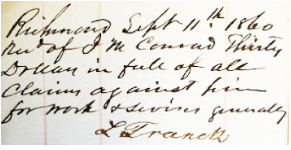 Richmond Sept 11th 1860
Recd of J M Conrad Thirty
Dollars in full of all
Claims against him
for work & servises generally
L Franck